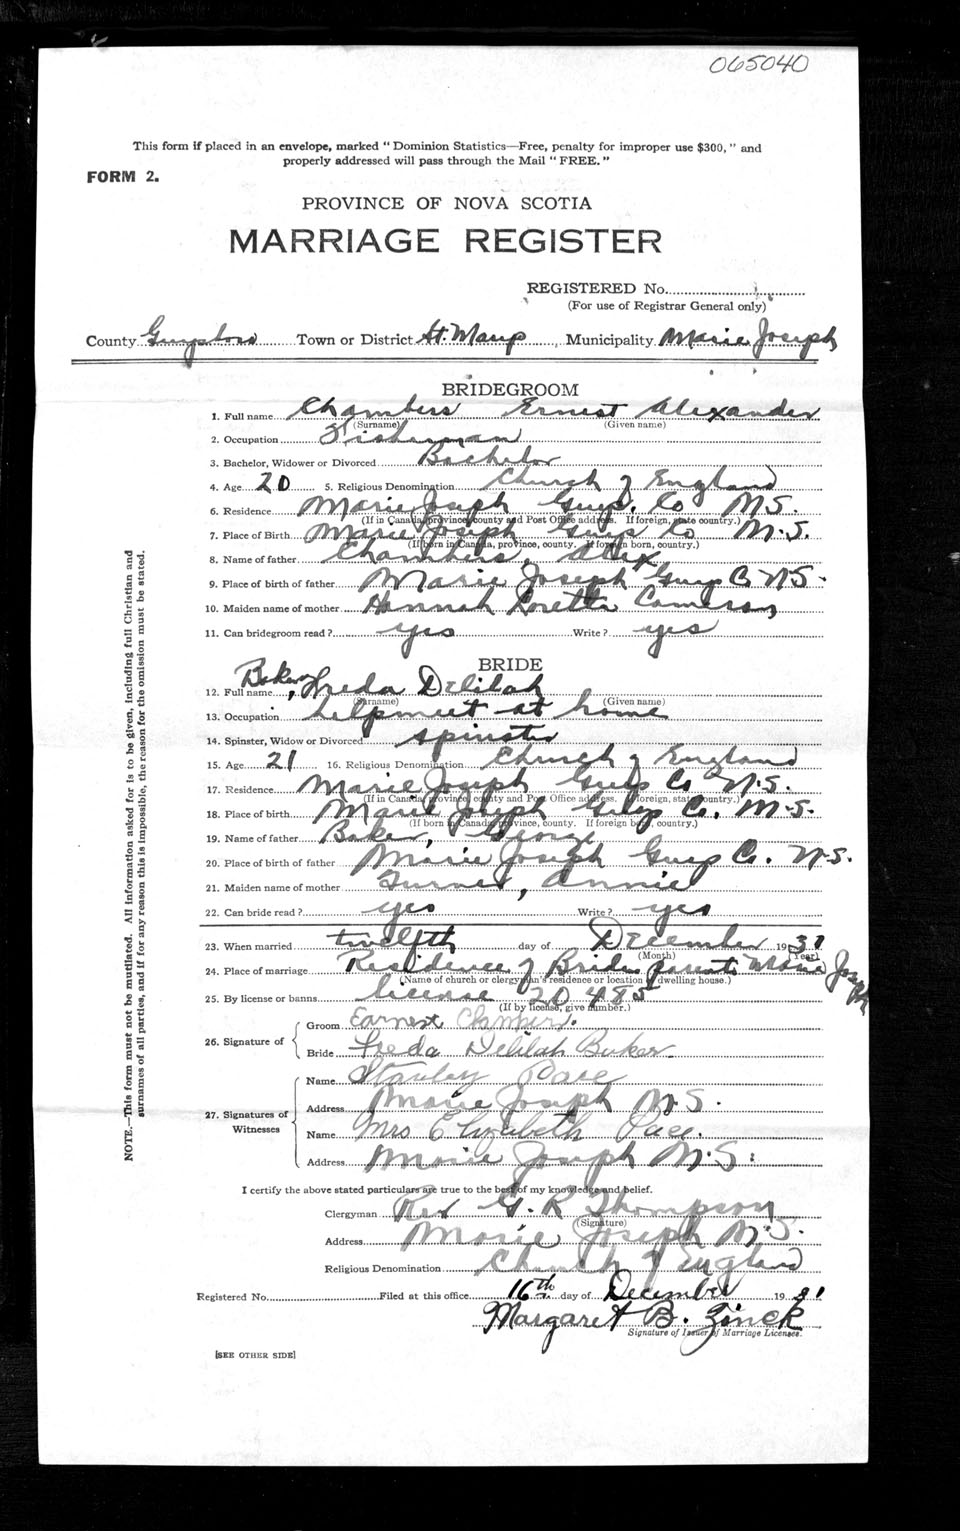 065040
This form if placed in an envelope, marked "Dominion Statistics—Free, penalty for improper use $300," and
properly addressed will pass through the Mail "FREE."
FORM 2.
PROVINCE OF NOVA SCOTIA
MARRIAGE REGISTER
REGISTERED No.
(For use of Registrar General only)
County Guysboro Town or District St. Marys Municipality Marie Joseph
BRIDEGROOM
1. Full name Chambers Ernest Alexander
(Surname) (Given name)
2. Occupation Fisherman
3. Bachelor, Widower or Divorced Bachelor
4. Age 20 5. Religious Denomination Church of England
6. Residence Marie Joseph Guys. Co N.S.
(If in Canada, province, county and Post Office address. If foreign, state country.)
7. Place of Birth Marie Joseph Guys Co N.S.
(If born in Canada, province, county. If foreign born, country.)
8. Name of father Chambers, Alex
9. Place of birth of father Marie Joseph Guys Co N.S.
10. Maiden name of mother Hannah Loretta Cameron
11. Can bridegroom read? yes Write? yes
BRIDE
12. Full name Baker, Freda Delilah
(Surname) (Given name)
13. Occupation helpmeet at home
14. Spinster, Widow or Divorced spinster
15. Age 21 16. Religious Denomination Church of England
17. Residence Marie Joseph Guys Co N.S.
(If in Canada, province, county and Post Office address. If foreign, state country.)
18. Place of birth Marie Joseph Guys Co, N.S.
(If born in Canada, province, county. If foreign born, country.)
19. Name of father Baker, George
20. Place of birth of father Marie Joseph Guys Co. N.S.
21. Maiden name of mother Turner, Annie
22. Can bride read? yes Write? yes
23. When married twelfth day of December 1931
(Month) (Year)
24. Place of marriage Residence of Brides parents Marie Joseph
(Name of church or clergyman's residence or location of dwelling house.)
25. By license or banns license 20485
(If by license, give number.)
26. Signature of
Groom Earnest Chambers.
Bride Freda Delilah Baker
27. Signatures of Witnesses
Name Stanley Pace
Address Marie Joseph N.S.
Name Mrs Elizabeth Pace.
Address Marie Joseph N.S.
I certify the above stated particulars are true to the best of my knowledge and belief.
Clergyman Rev G. R Thompson
(Signature)
Address Marie Joseph N.S.
Religious Denomination Church of England
Registered No. Filed at this office 16th day of December 1931
Margaret B. Zinck
Signature of Issuer of Marriage Licenses.
[SEE OTHER SIDE]
NOTE.—This form must not be mutilated. All information asked for is to be given, including full Christian and
surnames of all parties, and if for any reason this is impossible, the reason for the omission must be stated.